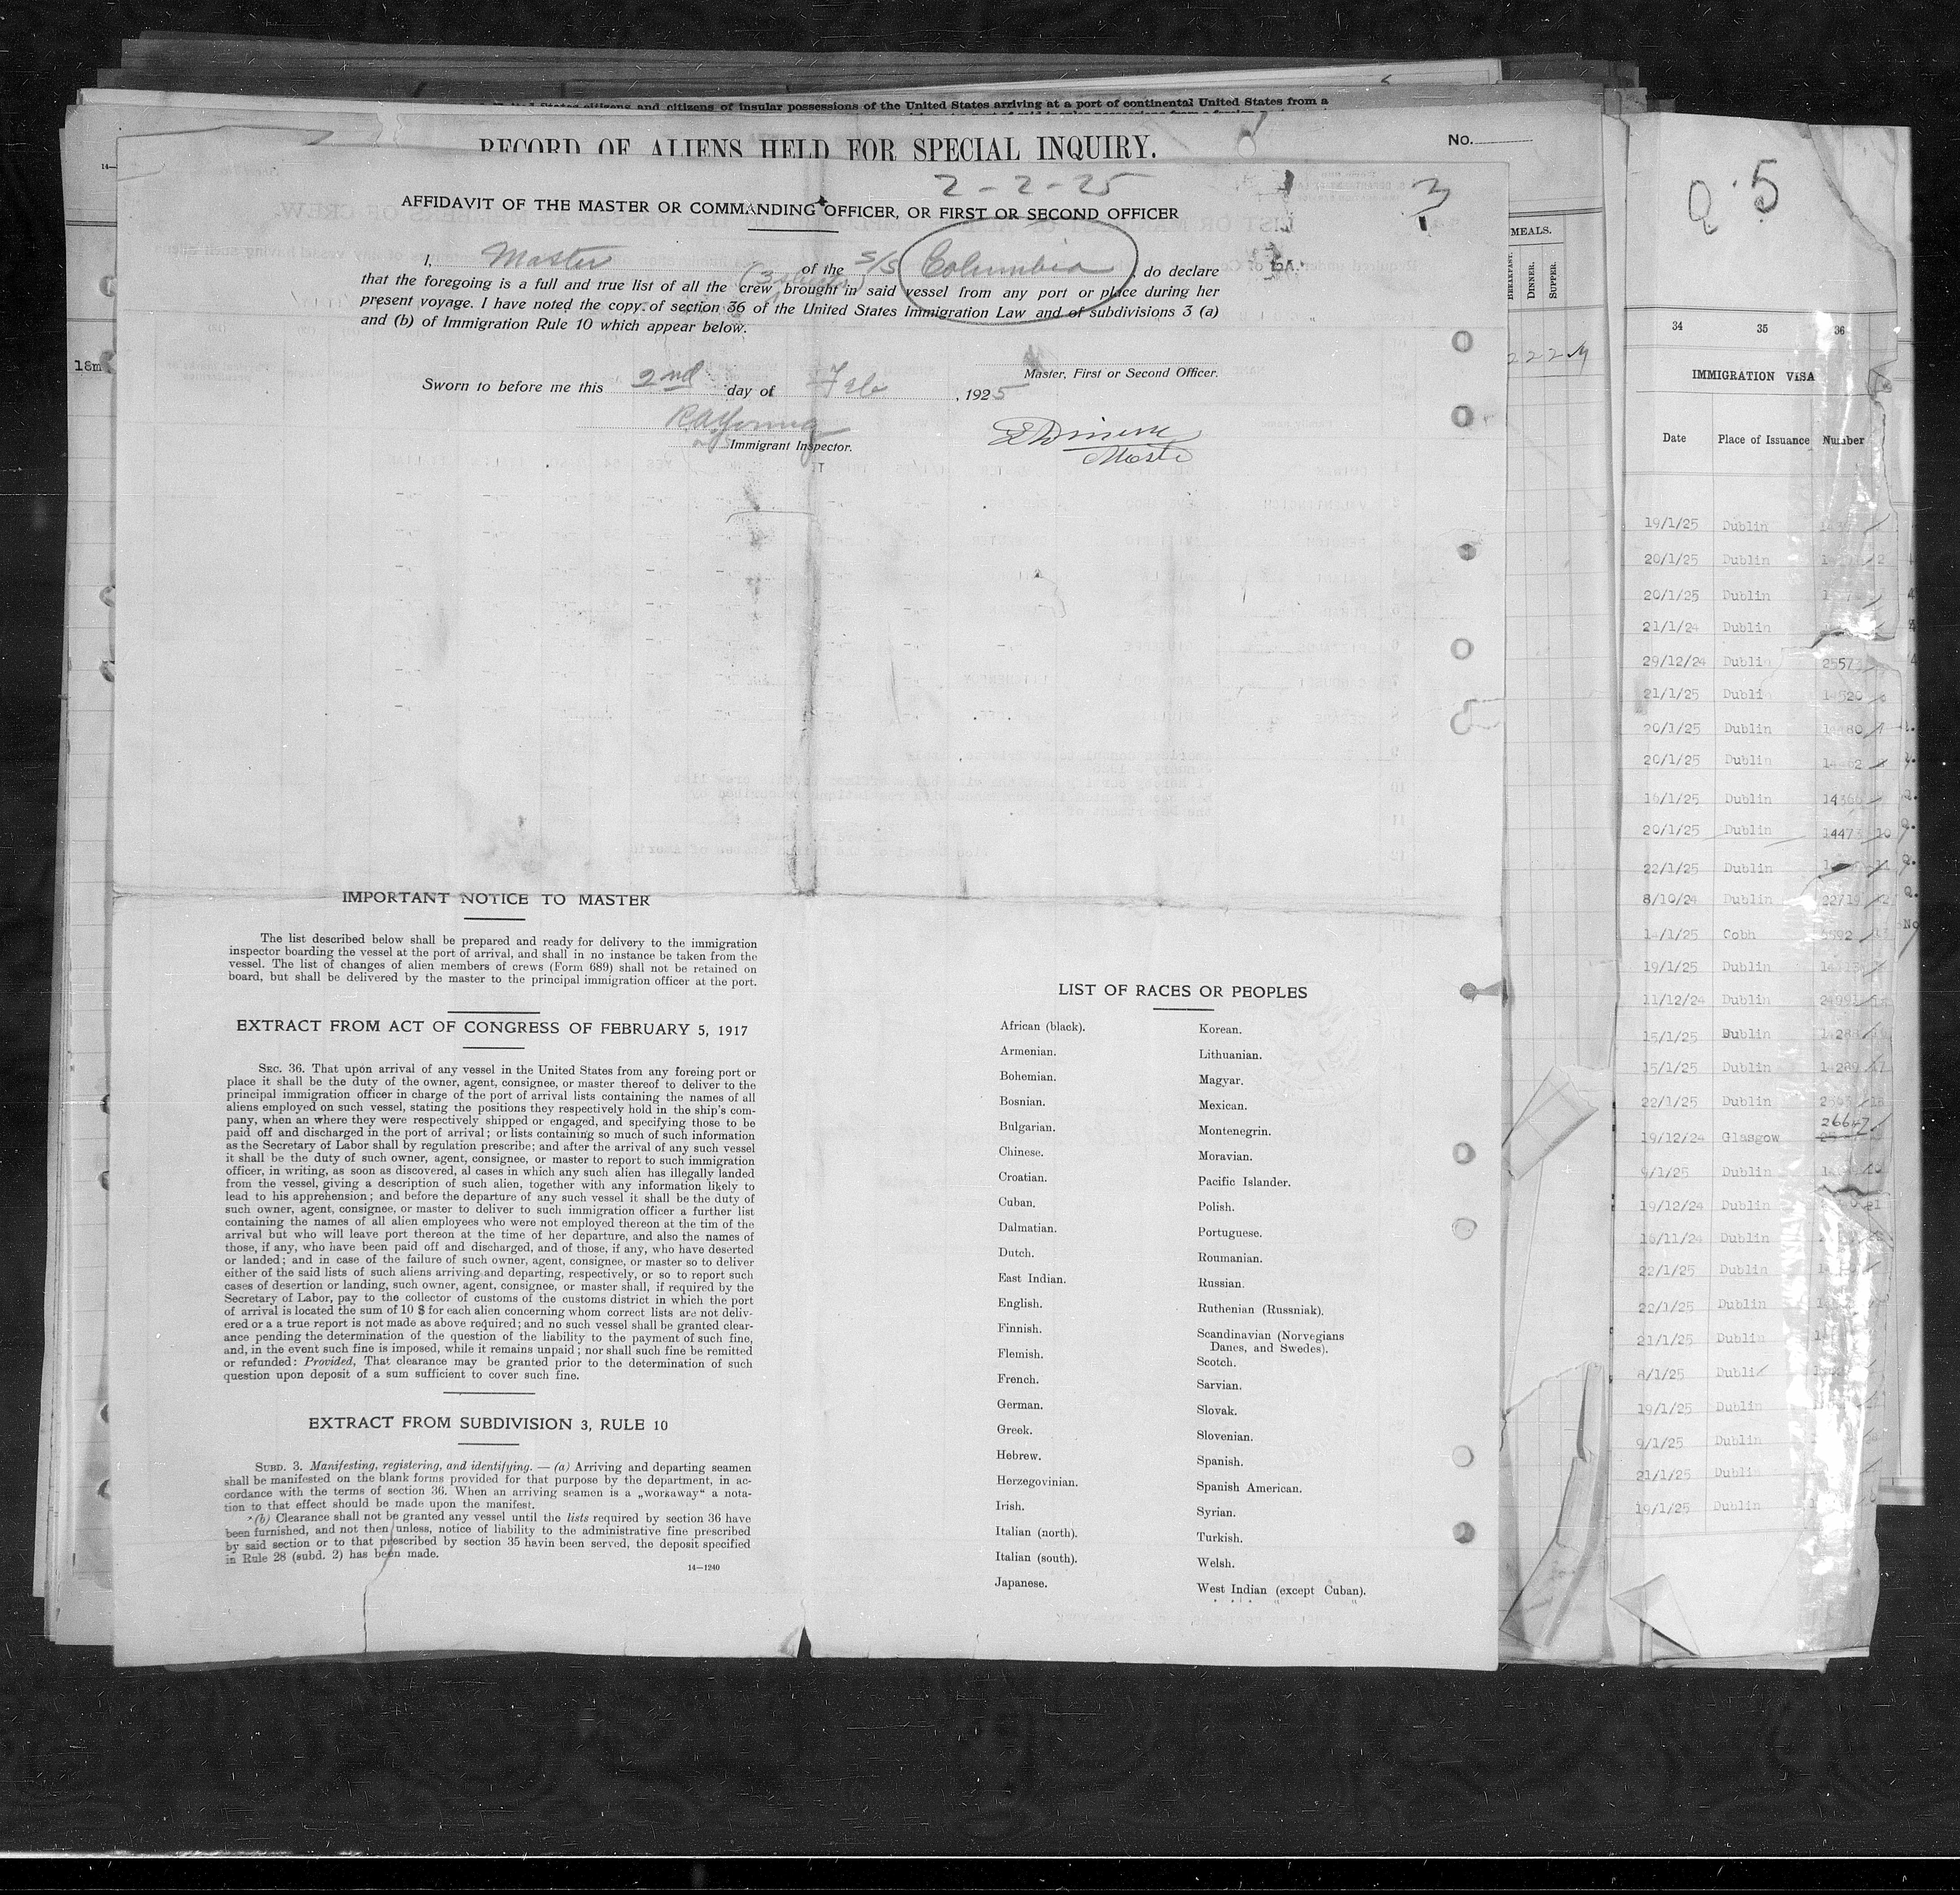 United States citizens and citizens of insular possessions of the United States arriving at a port of continental United States from a
RECORD OF ALIENS HELD FOR SPECIAL INQUIRY.
No.
2-2-25
3
AFFIDAVIT OF THE MASTER OR COMMANDING OFFICER, OR FIRST OR SECOND OFFICER
I, Master of the S/S Columbia, do declare
that the foregoing is a full and true list of all the crew brought in said vessel from any port or place during her
present voyage. I have noted the copy of section 36 of the United States Immigration Law and of subdivisions 3 (a)
and (b) of Immigration Rule 10 which appear below.
Master, First or Second Officer.
Sworn to before me this 2nd day of Feb, 1925
Immigrant Inspector.
IMPORTANT NOTICE TO MASTER
The list described below shall be prepared and ready for delivery to the immigration
inspector boarding the vessel at the port of arrival, and shall in no instance be taken from the
vessel. The list of changes of alien members of crews (Form 689) shall not be retained on
board, but shall be delivered by the master to the principal immigration officer at the port.
EXTRACT FROM ACT OF CONGRESS OF FEBRUARY 5, 1917
SEC. 36. That upon arrival of any vessel in the United States from any foreing port or
place it shall be the duty of the owner, agent, consignee, or master thereof to deliver to the
principal immigration officer in charge of the port of arrival lists containing the names of all
aliens employed on such vessel, stating the positions they respectively hold in the ship's com-
pany, when an where they were respectively shipped or engaged, and specifying those to be
paid off and discharged in the port of arrival; or lists containing so much of such information
as the Secretary of Labor shall by regulation prescribe; and after the arrival of any such vessel
it shall be the duty of such owner, agent, consignee, or master to report to such immigration
officer, in writing, as soon as discovered, al cases in which any such alien has illegally landed
from the vessel, giving a description of such alien, together with any information likely to
lead to his apprehension; and before the departure of any such vessel it shall be the duty of
such owner, agent, consignee, or master to deliver to such immigration officer a further list
containing the names of all alien employees who were not employed thereon at the tim of the
arrival but who will leave port thereon at the time of her departure, and also the names of
those, if any, who have been paid off and discharged, and of those, if any, who have deserted
or landed; and in case of the failure of such owner, agent, consignee, or master so to deliver
either of the said lists of such aliens arriving and departing, respectively, or so to report such
cases of desertion or landing, such owner, agent, consignee, or master shall, if required by the
Secretary of Labor, pay to the collector of customs of the customs district in which the port
of arrival is located the sum of 10 $ for each alien concerning whom correct lists are not deliv-
ered or a a true report is not made as above required; and no such vessel shall be granted clear-
ance pending the determination of the question of the liability to the payment of such fine,
and, in the event such fine is imposed, while it remains unpaid; nor shall such fine be remitted
or refunded: Provided, That clearance may be granted prior to the determination of such
question upon deposit of a sum sufficient to cover such fine.
EXTRACT FROM SUBDIVISION 3, RULE 10
SUBD. 3. Manifesting, registering, and identifying. — (a) Arriving and departing seamen
shall be manifested on the blank forms provided for that purpose by the department, in ac-
cordance with the terms of section 36. When an arriving seamen is a „workaway“ a nota-
tion to that effect should be made upon the manifest.
(b) Clearance shall not be granted any vessel until the lists required by section 36 have
been furnished, and not then unless, notice of liability to the administrative fine prescribed
by said section or to that prescribed by section 35 havin been served, the deposit specified
in Rule 28 (subd. 2) has been made.
14—1240
LIST OF RACES OR PEOPLES
African (black).
Armenian.
Bohemian.
Bosnian.
Bulgarian.
Chinese.
Croatian.
Cuban.
Dalmatian.
Dutch.
East Indian.
English.
Finnish.
Flemish.
French.
German.
Greek.
Hebrew.
Herzegovinian.
Irish.
Italian (north).
Italian (south).
Japanese.
Korean.
Lithuanian.
Magyar.
Mexican.
Montenegrin.
Moravian.
Pacific Islander.
Polish.
Portuguese.
Roumanian.
Russian.
Ruthenian (Russniak).
Scandinavian (Norvegians
Danes, and Swedes).
Scotch.
Sarvian.
Slovak.
Slovenian.
Spanish.
Spanish American.
Syrian.
Turkish.
Welsh.
West Indian (except Cuban).
MEALS.
BREAKFAST.
DINNER.
SUPPER.
222
18m
5
34 35 36
IMMIGRATION VISA
Date Place of Issuance Number
19/1/25 Dublin
20/1/25 Dublin
20/1/25 Dublin
21/1/24 Dublin
29/12/24 Dublin 2557
21/1/25 Dubli 14520
20/1/25 Dublin 14480
20/1/25 Dublin 14462
16/1/25 Dublin 14366
20/1/25 Dublin 14473 10
22/1/25 Dublin
8/10/24 Dublin 22719 12
14/1/25 Cobh 5592 13
19/1/25 Dublin
11/12/24 Dublin
15/1/25 Dublin 14288
15/1/25 Dublin 14289 17
22/1/25 Dublin
19/12/24 Glasgow 26647
9/1/25 Dublin
19/12/24 Dublin 21
16/11/24 Dublin
22/1/25 Dublin
22/1/25 Dublin
21/1/25 Dublin
8/1/25 Dublin
19/1/25 Dublin
9/1/25 Dublin
21/1/25 Dublin
19/1/25 Dublin